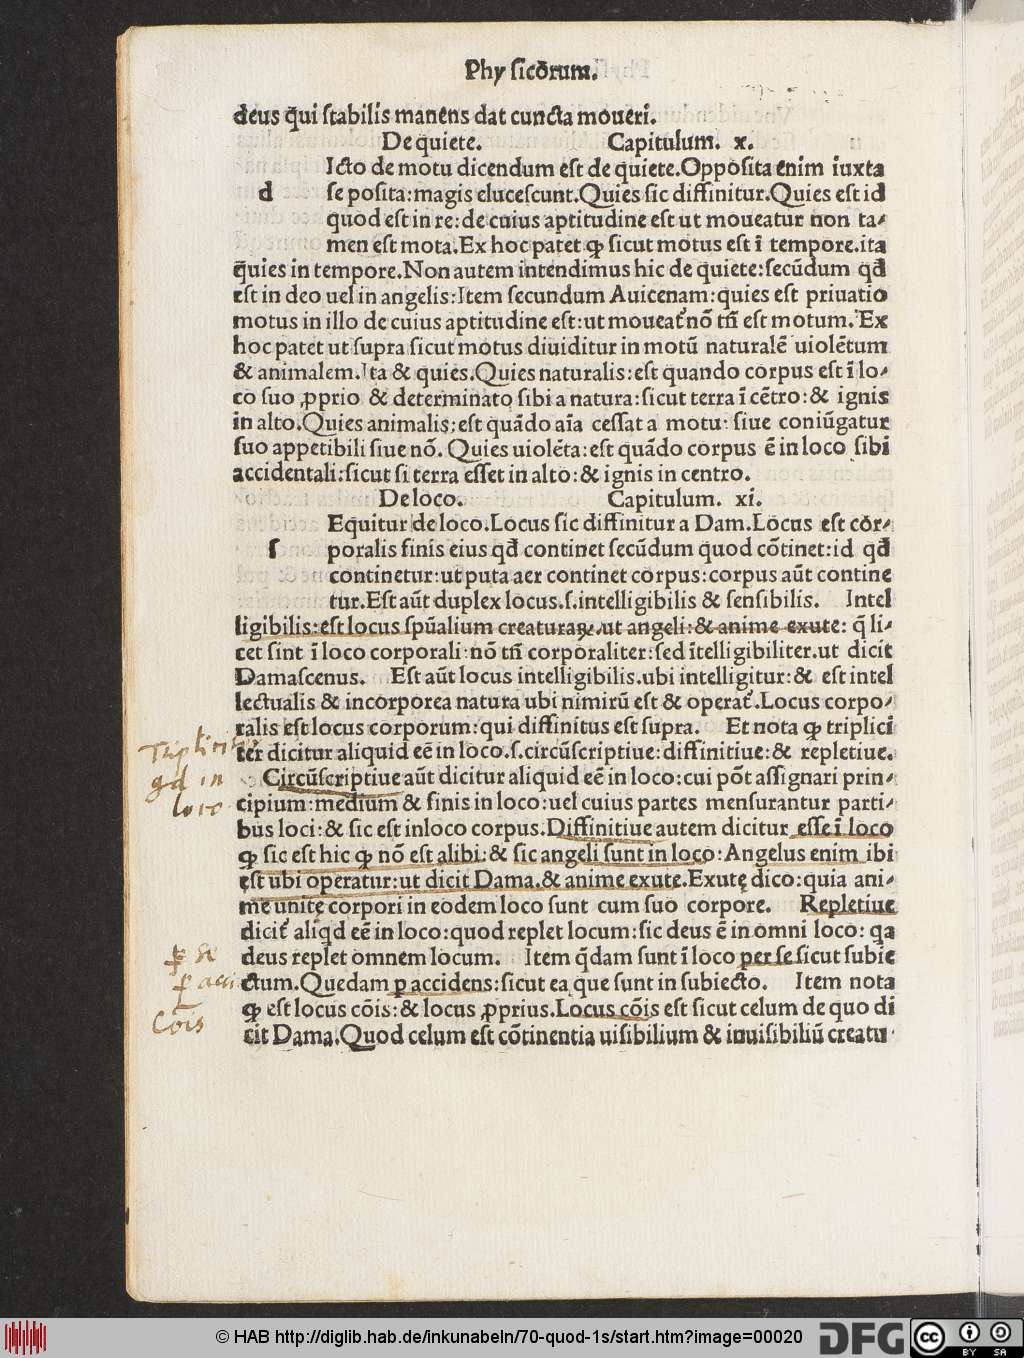 Phyſicõrum.
deus q̄ui ſtabilis manens dat cuncta moueri.
De quiete. Capitulum. x.
Icto de motu dicendum eſt de quiete.Oppoſita enim iuxta
d ſe poſita:magis eluceſcunt.Quies ſic diffinitur.Quies eſt id
quod eſt in re:de cuius aptitudine eſt ut moueatur non ta⸗
men eſt mota.Ex hoc patet ꝙ ſicut motus eſt ī tempore.ita
q̄uies in tempore.Non autem intendimus hic de quiete:ſecūdum qđ
eſt in deo uel in angelis:Item ſecundum Auicenam:quies eſt priuatio
motus in illo de cuius aptitudine eſt:ut moueat᷑ nō tñ eſt motum. Ex
hoc patet ut ſupra ſicut motus diuiditur in motū naturalē uiolētum
& animalem.Ita & quies.Quies naturalis:eſt quando corpus eſt ī lo⸗
co ſuo ꝓprio & determinato ſibi a natura:ſicut terra ī cētro:& ignis
in alto.Quies animalis:eſt quādo aīa ceſſat a motu: ſiue coniūgatur
ſuo appetibili ſiue nō. Quies uiolēta:eſt quādo corpus ē in loco ſibi
accidentali:ſicut ſi terra eſſet in alto:& ignis in centro.
De loco. Capitulum. xi.
Equitur de loco.Locus ſic diffinitur a Dam.Locus eſt cõr⸗
ſ poralis finis eius qđ continet ſecūdum quod cōtinet:id qđ
continetur:ut puta aer continet corpus:corpus aūt contine
tur.Eſt aūt duplex locus.ſ.intelligibilis & ſenſibilis. Intel
ligibilis:eſt locus ſpūalium creaturaꝝ.ut angeli:& anime exute: q̄ li⸗
cet ſint ī loco corporali:nō tñ corporaliter:ſed ītelligibiliter.ut dicit
Damaſcenus. Eſt aūt locus intelligibilis.ubi intelligitur:& eſt intel
lectualis & incorporea natura ubi nimirū eſt & operat᷑.Locus corpo⸗
ralis eſt locus corporum:qui diffinitus eſt ſupra. Et nota ꝙ triplici
ter dicitur aliquid eē in loco.ſ.circūſcriptiue:diffinitiue:& repletiue.
Circūſcriptiue aūt dicitur aliquid eē in loco:cui pōt aſſignari prin⸗
cipium:medium & finis in loco:uel cuius partes menſurantur parti⸗
bus loci:& ſic eſt inloco corpus.Diffinitiue autem dicitur eſſe ī loco
ꝙ ſic eſt hic ꝙ nō eſt alibi:& ſic angeli ſunt in loco:Angelus enim ibi
eſt ubi operatur:ut dicit Dama.& anime exute.Exutę dico:quia ani⸗
me unitę corpori in eodem loco ſunt cum ſuo corpore. Repletiue
dicit᷑ aliqd eē in loco:quod replet locum:ſic deus ē in omni loco: qa
deus replet omnem locum. Item q̄dam ſunt ī loco per ſe ſicut ſubie
ctum.Quedam ꝑ accidens:ſicut ea que ſunt in ſubiecto. Item nota
ꝙ eſt locus cōis:& locus ꝓprius.Locus cōis eſt ſicut celum de quo di
cit Dama.Quod celum eſt cōtinentia uiſibilium & inuiſibiliū creatu⸗
qd in
loco
ꝑ se
ꝑ acci
Cōis
© HAB http://diglib.hab.de/inkunabeln/70-quod-1s/start.htm?image=00020
DFG
cc BY SA